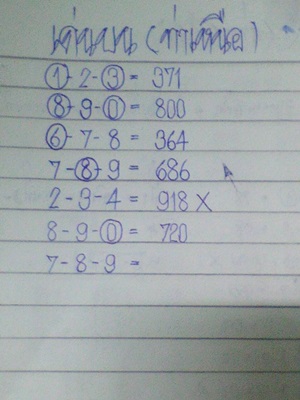 เด่นบน (ท่าเหนือ)
1 - 2 - 3 = 371
8 - 9 - 0 = 800
6 - 7 - 8 = 364
7 - 8 - 9 = 686
2 - 3 - 4 = 918 X
8 - 9 - 0 = 720
7 - 8 - 9 =